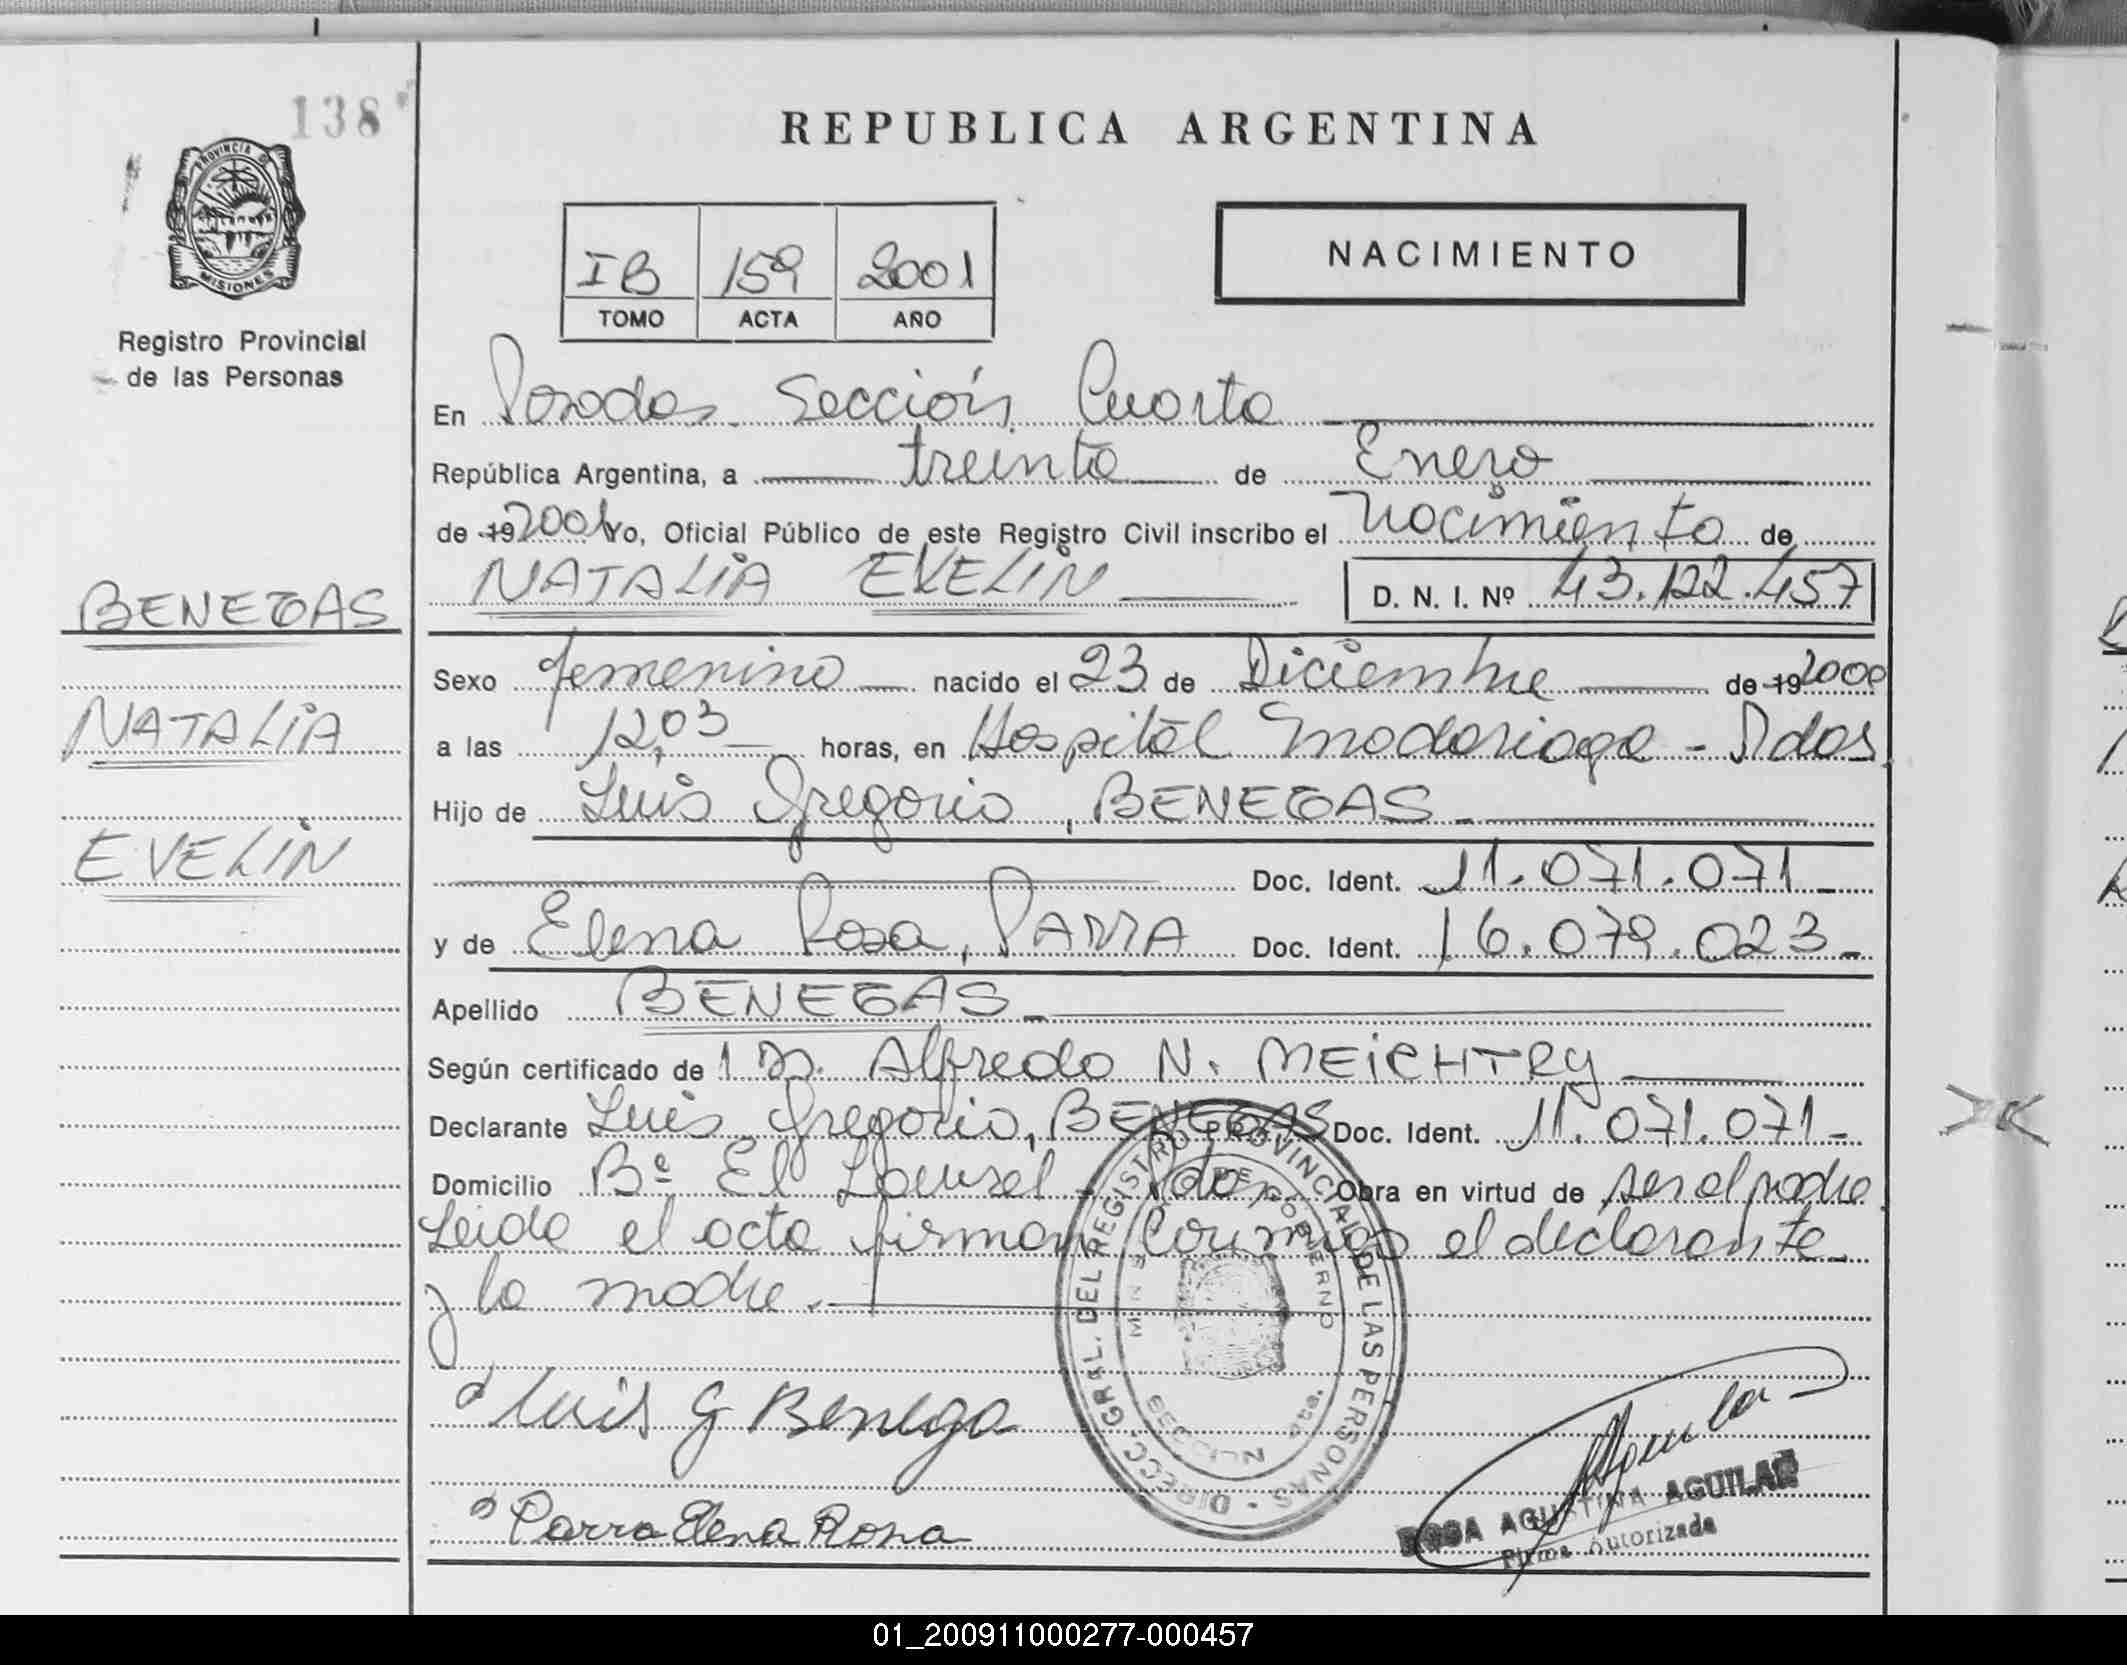 138
REPUBLICA ARGENTINA
PROVINCIA DE
MISIONES
Registro Provincial
de las Personas
NACIMIENTO
IB 159 2001
TOMO ACTA AÑO
En Posadas Sección Cuarta
República Argentina, a treinta de Enero
de 19 2001 Yo, Oficial Público de este Registro Civil inscribo el Nacimiento de
NATALIA EVELIN D. N. I. Nº 43.122.457
BENEGAS
NATALIA
EVELIN
Sexo femenino nacido el 23 de Diciembre de 19 2000
a las 12,03 horas, en Hospital Madariaga - Pdas
Hijo de Luis Gregorio, BENEGAS
Doc. Ident. 11.071.071
y de Elena Rosa, PARRA Doc. Ident. 16.079.023
Apellido BENEGAS
Según certificado de Dr. Alfredo N. MEICHTRY
Declarante Luis Gregorio, BENEGAS Doc. Ident. 11.071.071
Domicilio Bº El Laurel - Pdas Obra en virtud de ser el padre
Leida el acta firman conmigo el declarante
y la madre.
DIRECC. GRAL. DEL REGISTRO PROVINCIAL DE LAS PERSONAS
DE GOBIERNO
SECCION 4ta.
Luis G Benega
Parra Elena Rosa
ROSA AGUSTINA AGUILAR
Firma Autorizada
01_200911000277-000457